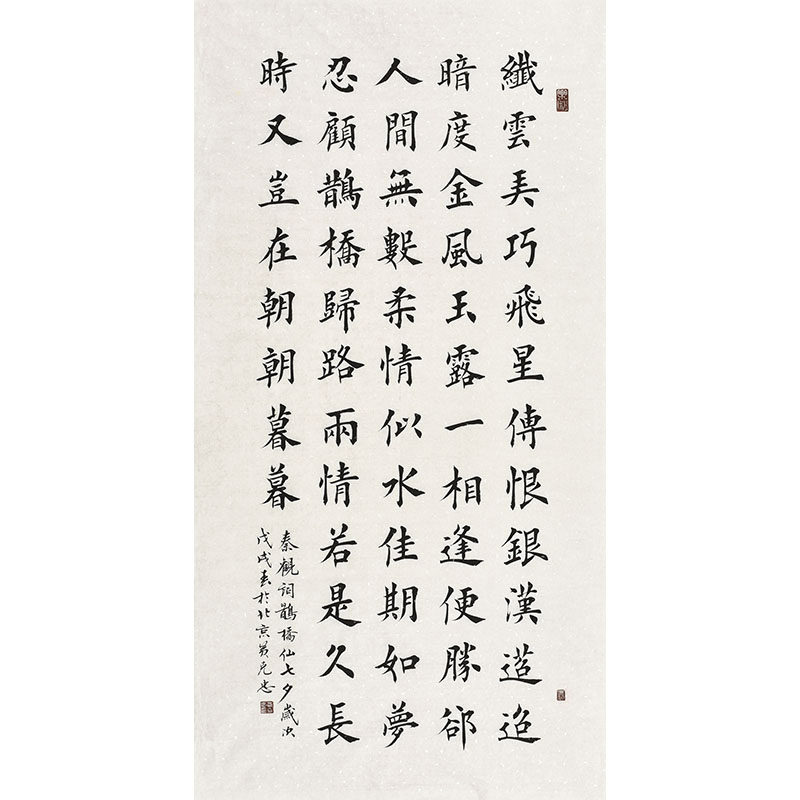 纖雲弄巧飛星傳恨銀漢迢迢
暗度金風玉露一相逢便勝卻
人間無數柔情似水佳期如夢
忍顧鵲橋歸路兩情若是久長
時又豈在朝朝暮暮
秦觀詞鵲橋仙七夕歲次
戊戌春於北京黃元忠